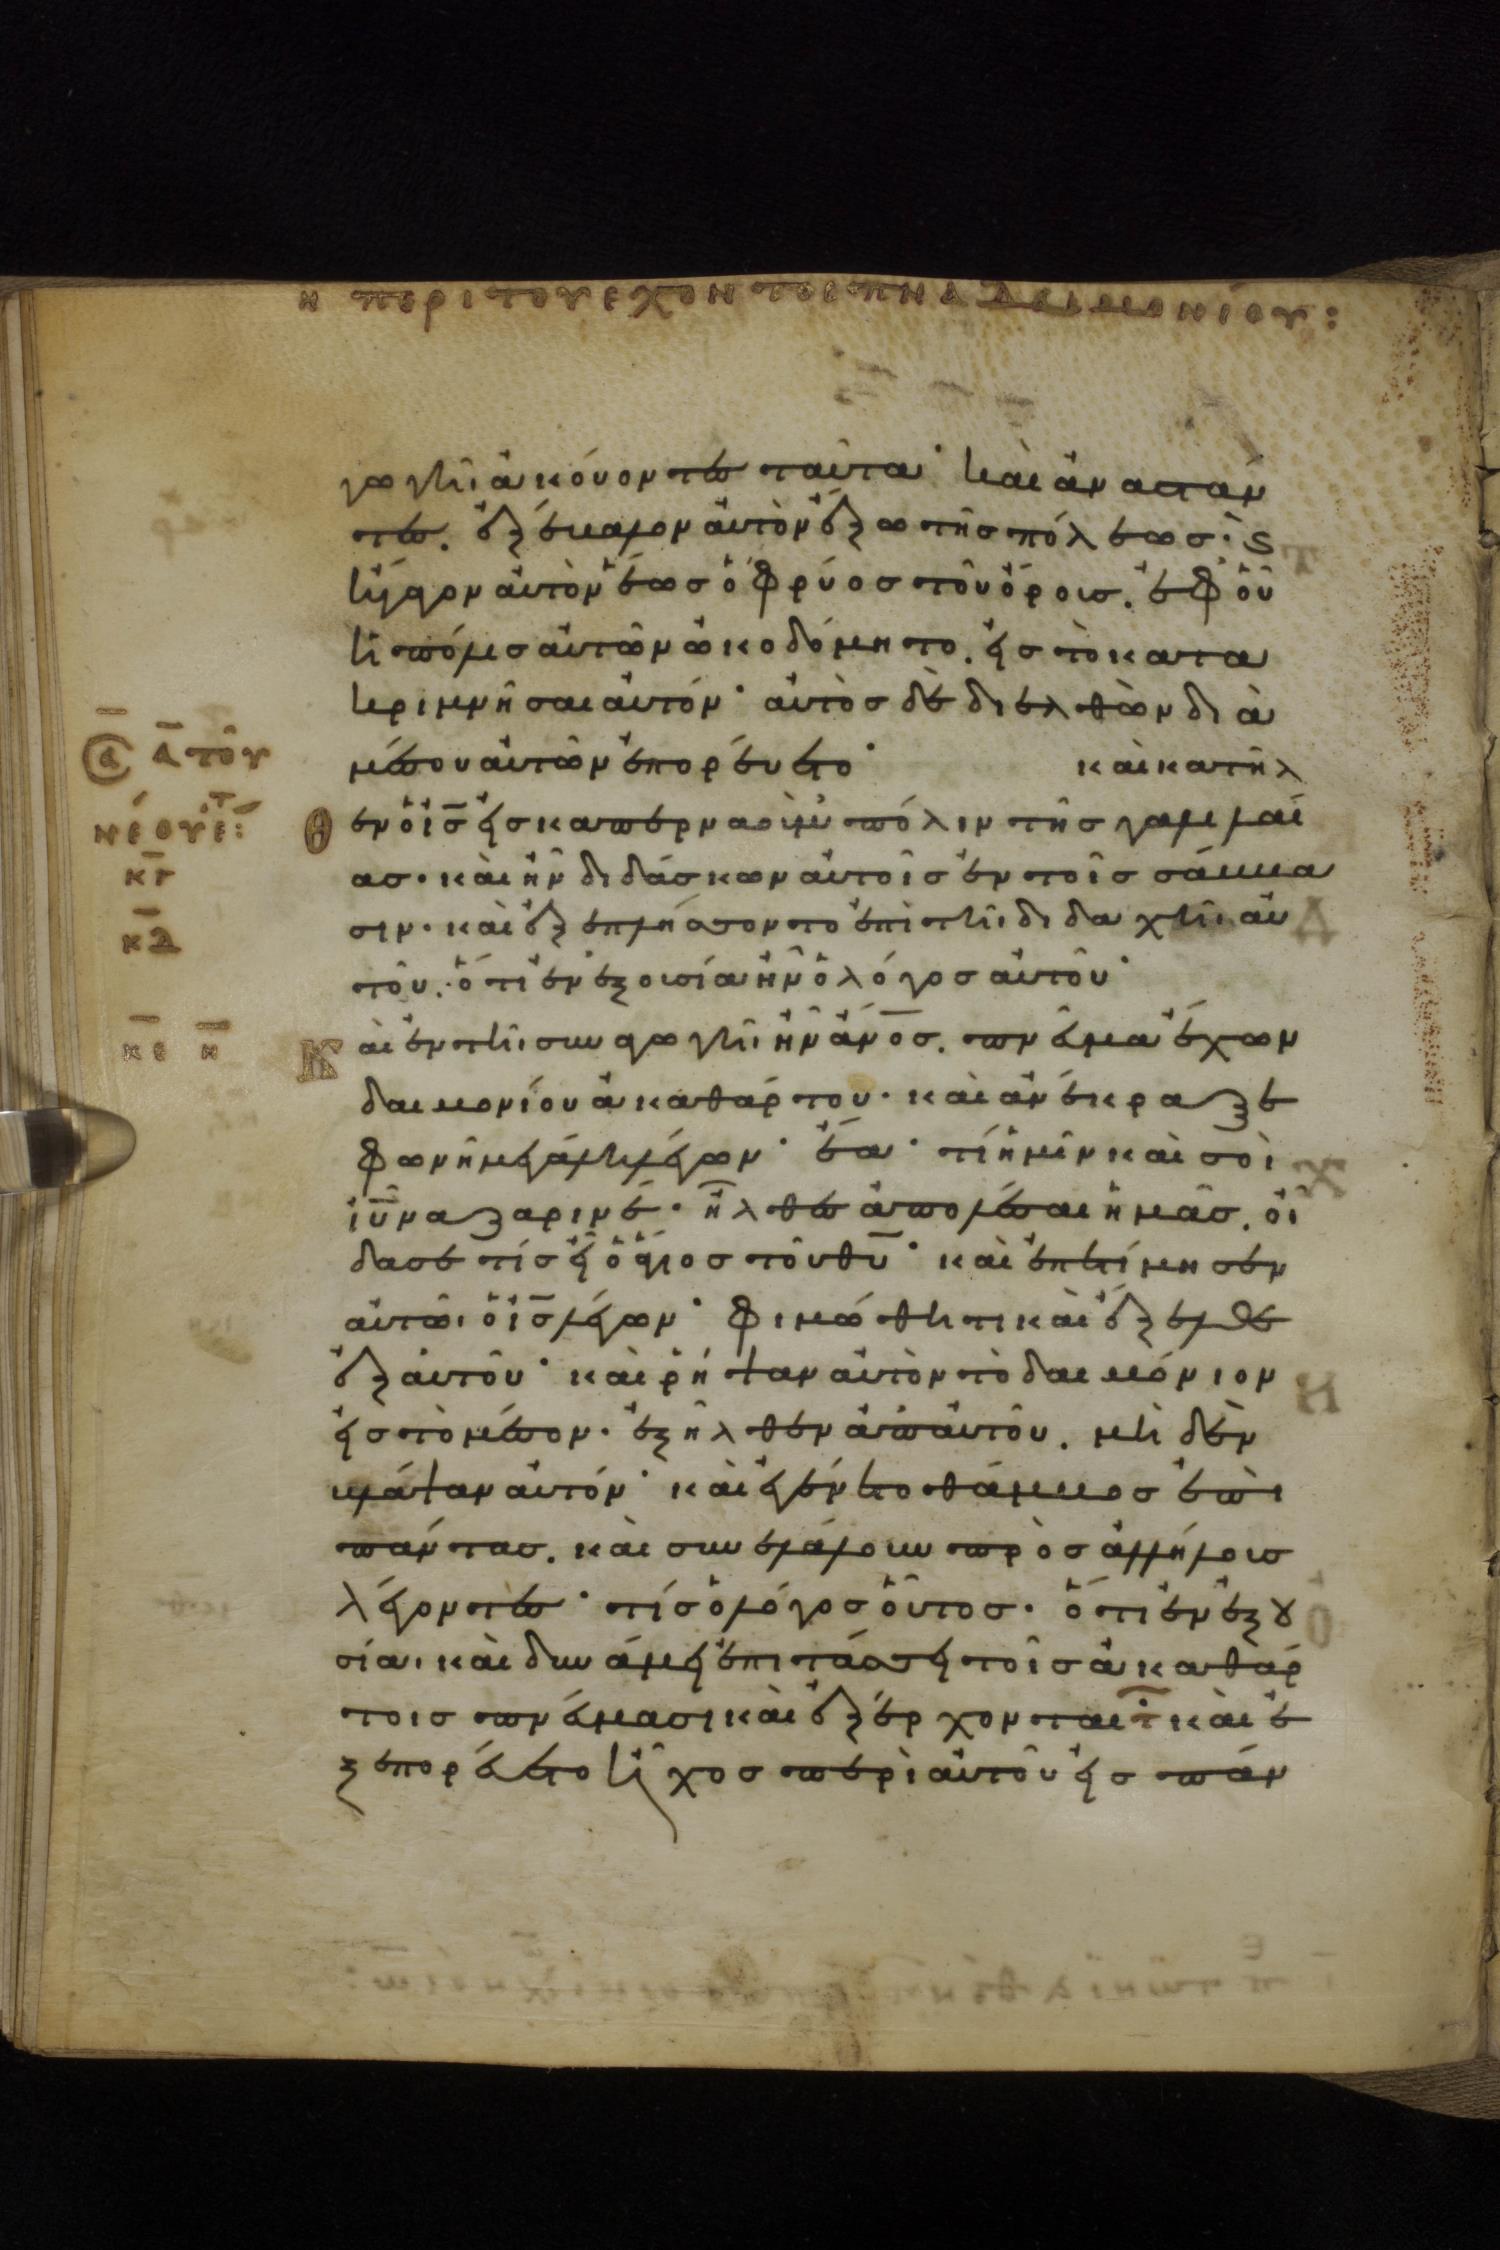 η περι του εχοντος πνα δαιμονιου:
γωγῆι ἀκούοντες ταῦτα· καὶ ἀναστάν
τες. ἐξέβαλον αὐτὸν ἔξω τῆς πόλεως· ϗ
ἤγαγον αὐτὸν ἕως ὀφρύος τοῦ ὄρους. ἐφ' οὗ
ἡ πόλις αὐτῶν ὠκοδόμητο. εἰς τὸ κατα
κριμνῆσαι αὐτόν· αὐτὸς δὲ διελθὼν διὰ
μέσου αὐτῶν ἐπορεύετο· καὶ κατῆλ
θεν ὁ ι̅ς̅ εἰς καπερναοὺμ πόλιν τῆς γαλιλαί
ας· καὶ ἦν διδάσκων αὐτοῖς ἐν τοῖς σάββα
σιν· καὶ ἐξεπλήσσοντο ἐπὶ τῆι διδαχῆι αὐ
τοῦ. ὅτι ἐν ἐξουσία ἦν ὁ λόγος αὐτοῦ·
Καὶ ἐν τῆι συναγωγῆι ἦν ἄν̅ο̅ς̅. πνεῦμα ἔχων
δαιμονίου ἀκαθάρτου· καὶ ἀνέκραξε
φωνῆ μεγάλη λέγων· ἔα· τί ἡμῖν καὶ σοὶ
ἰ̅υ̅ ναζαρινέ· ἦλθες ἀπολέσαι ἡμᾶς. οἶ
δα σε τίς εἶ ὁ ἅγιος τοῦ θ̅υ̅· καὶ ἐπετίμησεν
αὐτῶι ὁ ι̅ς̅ λέγων· φιμώθητι καὶ ἔξελθε
ἐξ αὐτοῦ· καὶ ῥήψαν αὐτὸν τὸ δαιμόνιον
εἰς τὸ μέσον· ἐξῆλθεν ἀπ' αὐτοῦ. μηδὲν
βλάψαν αὐτόν· καὶ ἐγένετο θάμβος ἐπὶ
πάντας. καὶ συνελάλουν πρὸς ἀλλήλους
λέγοντες· τίς ὁ λόγος οὗτος· ὅτι ἐν ἐξου
σία. καὶ δυνάμει ἐπιτάσσει τοῖς ἀκαθάρ
τοις πνεύμασι καὶ ἐξέρχονται τ καὶ ἐ
ξεπορεύετο ἦχος περὶ αὐτοῦ εἰς πάν
κ̅γ̅
κ̅δ̅
κ̅ε̅ η̅